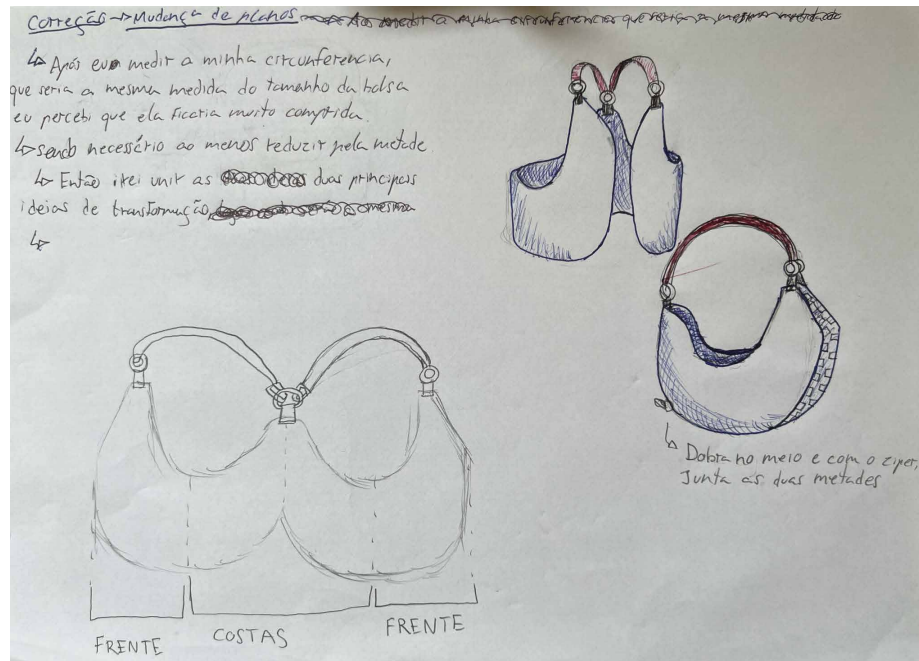 Correção → Mudança de planos
↳ Após eu medir a minha circunferencia,
que seria a mesma medida do tamanho da bolsa
eu percebi que éla ficaria muito comprida.
↳ sendo necessário ao menos reduzir pela metade.
↳ Então irei unir as duas principais
ideias de transformação,
↳
↳ Dobra no meio e com o ziper,
Junta as duas metades
FRENTE COSTAS FRENTE